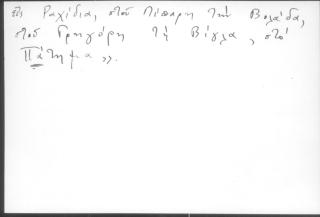 στς Ραχίδια, στοῦ Πίπαρη τὴν Βολάδα,
στοῦ Γρηγόρη τὴ Βίγλα, στὸ
Πάτημα».